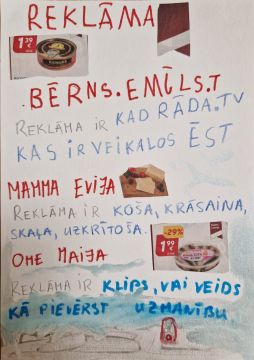 REKLĀMA
1 39
BĒRNS. EMĪLS.T
REKLĀMA IR KAD RĀDA.TV
KAS IR VEIKALOS ĒST
MAMMA EVIJA
REKLĀMA IR KOŠA, KRĀSAINA,
SKAĻA, UZKRĪTOŠA.
-29%
1 99
OME MAIJA
REKLĀMA IR KLIPS, VAI VEIDS
KĀ PIEVĒRST UZMANĪBU